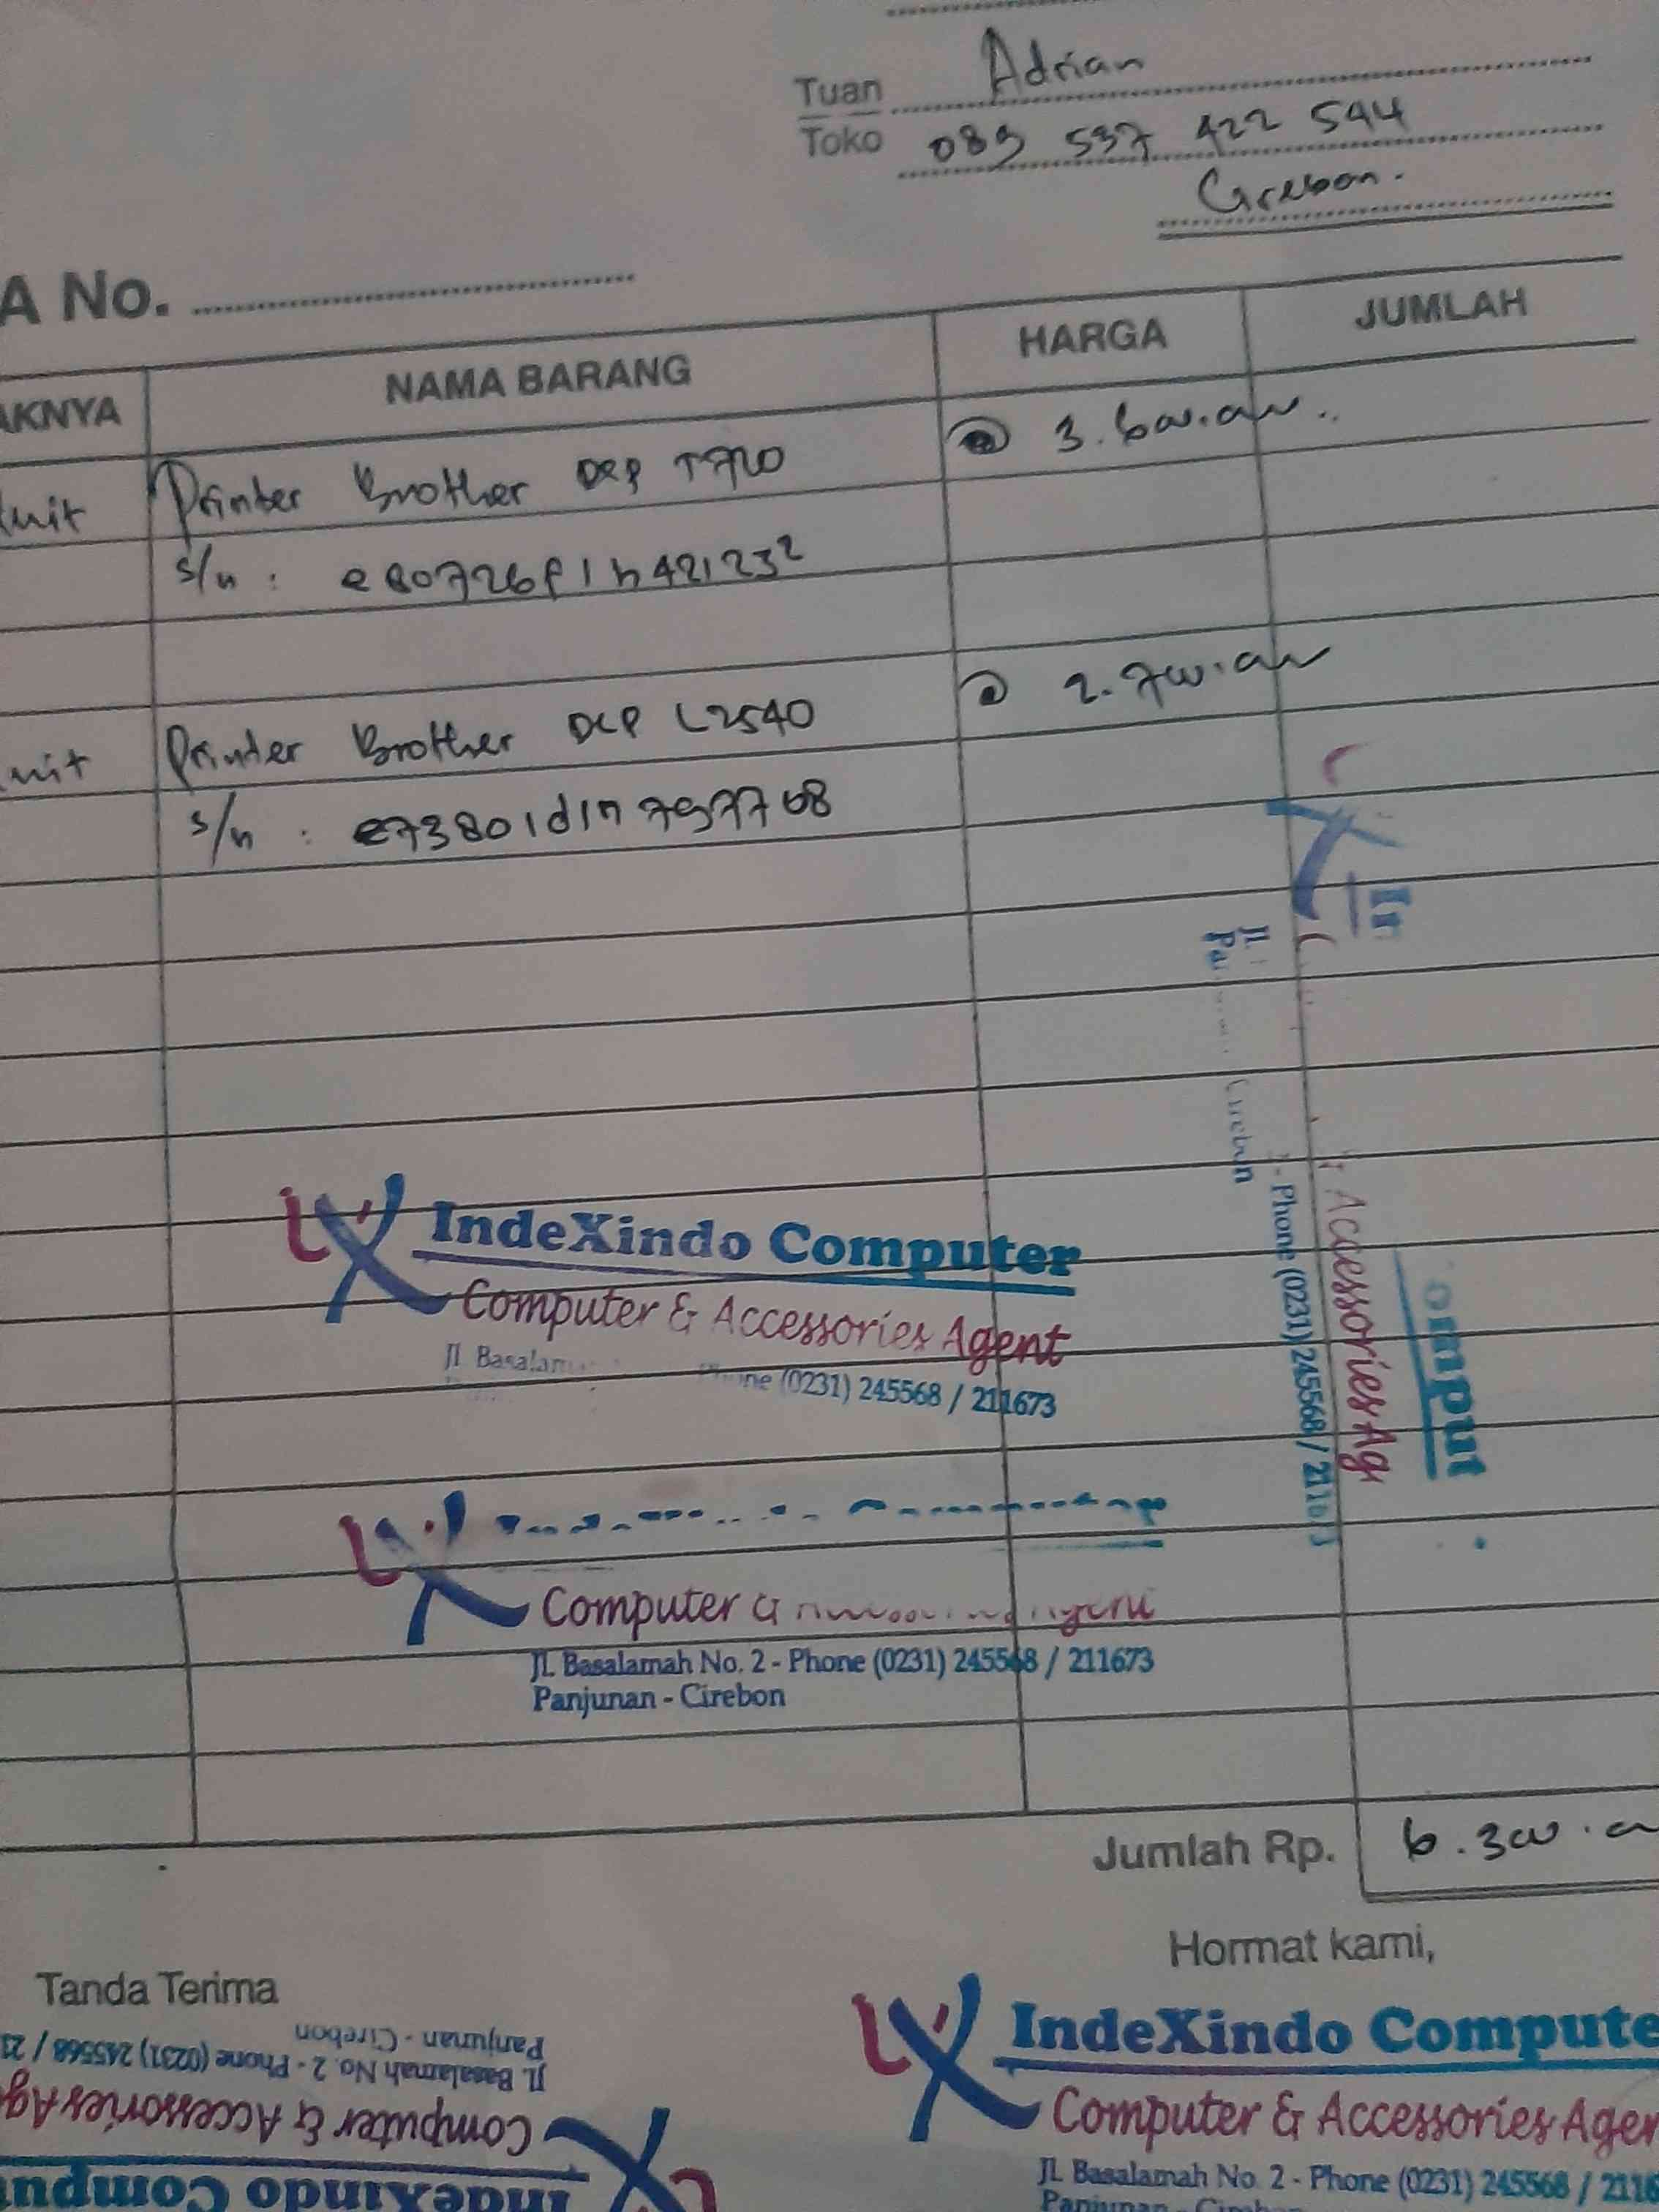 Tuan Adrian
Toko 089 537 422 544
Cirebon.
A No.
AKNYA NAMA BARANG HARGA JUMLAH
unit Printer Brother DCP T720 @ 3.600.000
s/n : e80726f1h421232
unit Printer Brother DCP L2540 @ 2.700.000
s/n : e73801d1n797768
IndeXindo Computer
Computer & Accessories Agent
Jl. Basalam
(0231) 245568 / 211673
Jl.
Pa Cirebon
- Phone (0231) 245568 / 211673
Accessories Ag
omput
Computer &
Jl. Basalamah No. 2 - Phone (0231) 245568 / 211673
Panjunan - Cirebon
Jumlah Rp. 6.300.0
Tanda Terima
Hormat kami,
IndeXindo Compute
Computer & Accessories Agen
Jl. Basalamah No. 2 - Phone (0231) 245568 / 2116
Panjunan - Cirebon
IndeXindo Comput
Computer & Accessories Ag
Jl. Basalamah No. 2 - Phone (0231) 245568 / 21
Panjunan - Cirebon